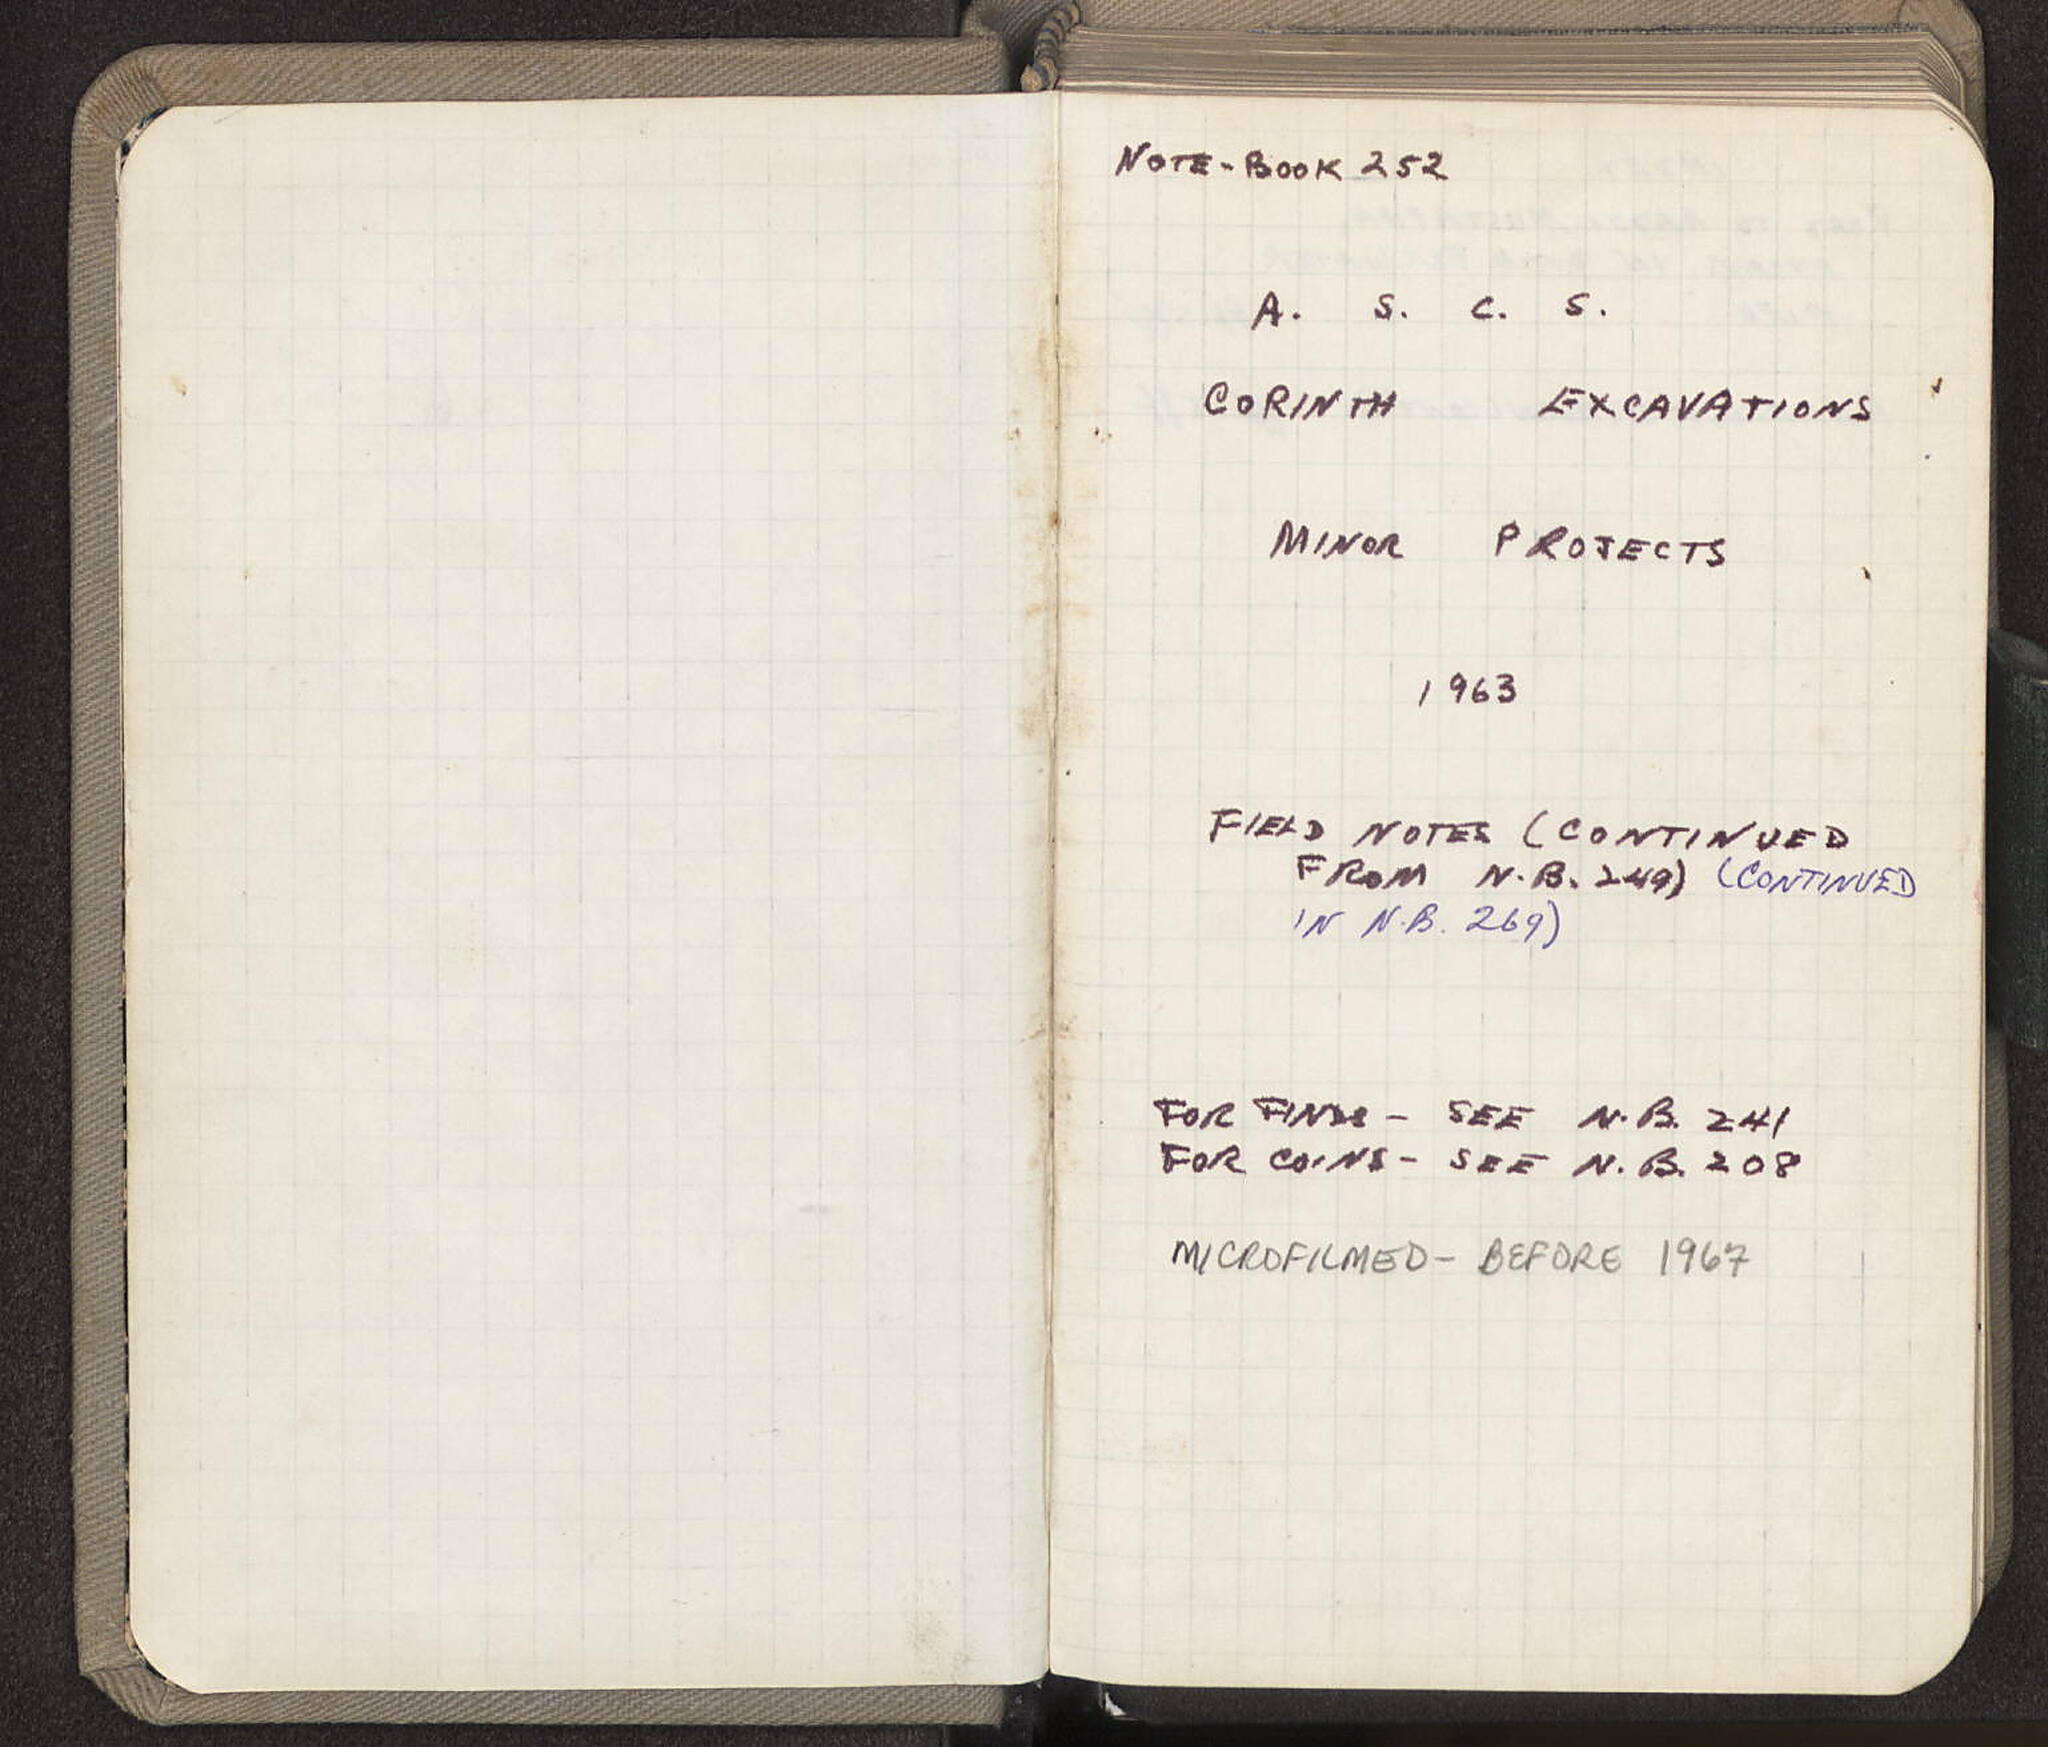 NOTE-BOOK 252
A. S. C. S.
CORINTH EXCAVATIONS
MINOR PROJECTS
1963
FIELD NOTES (CONTINUED
FROM N.B. 249) (CONTINUED
IN N.B. 269)
FOR FINDS - SEE N.B. 241
FOR COINS - SEE N.B. 208
MICROFILMED - BEFORE 1967